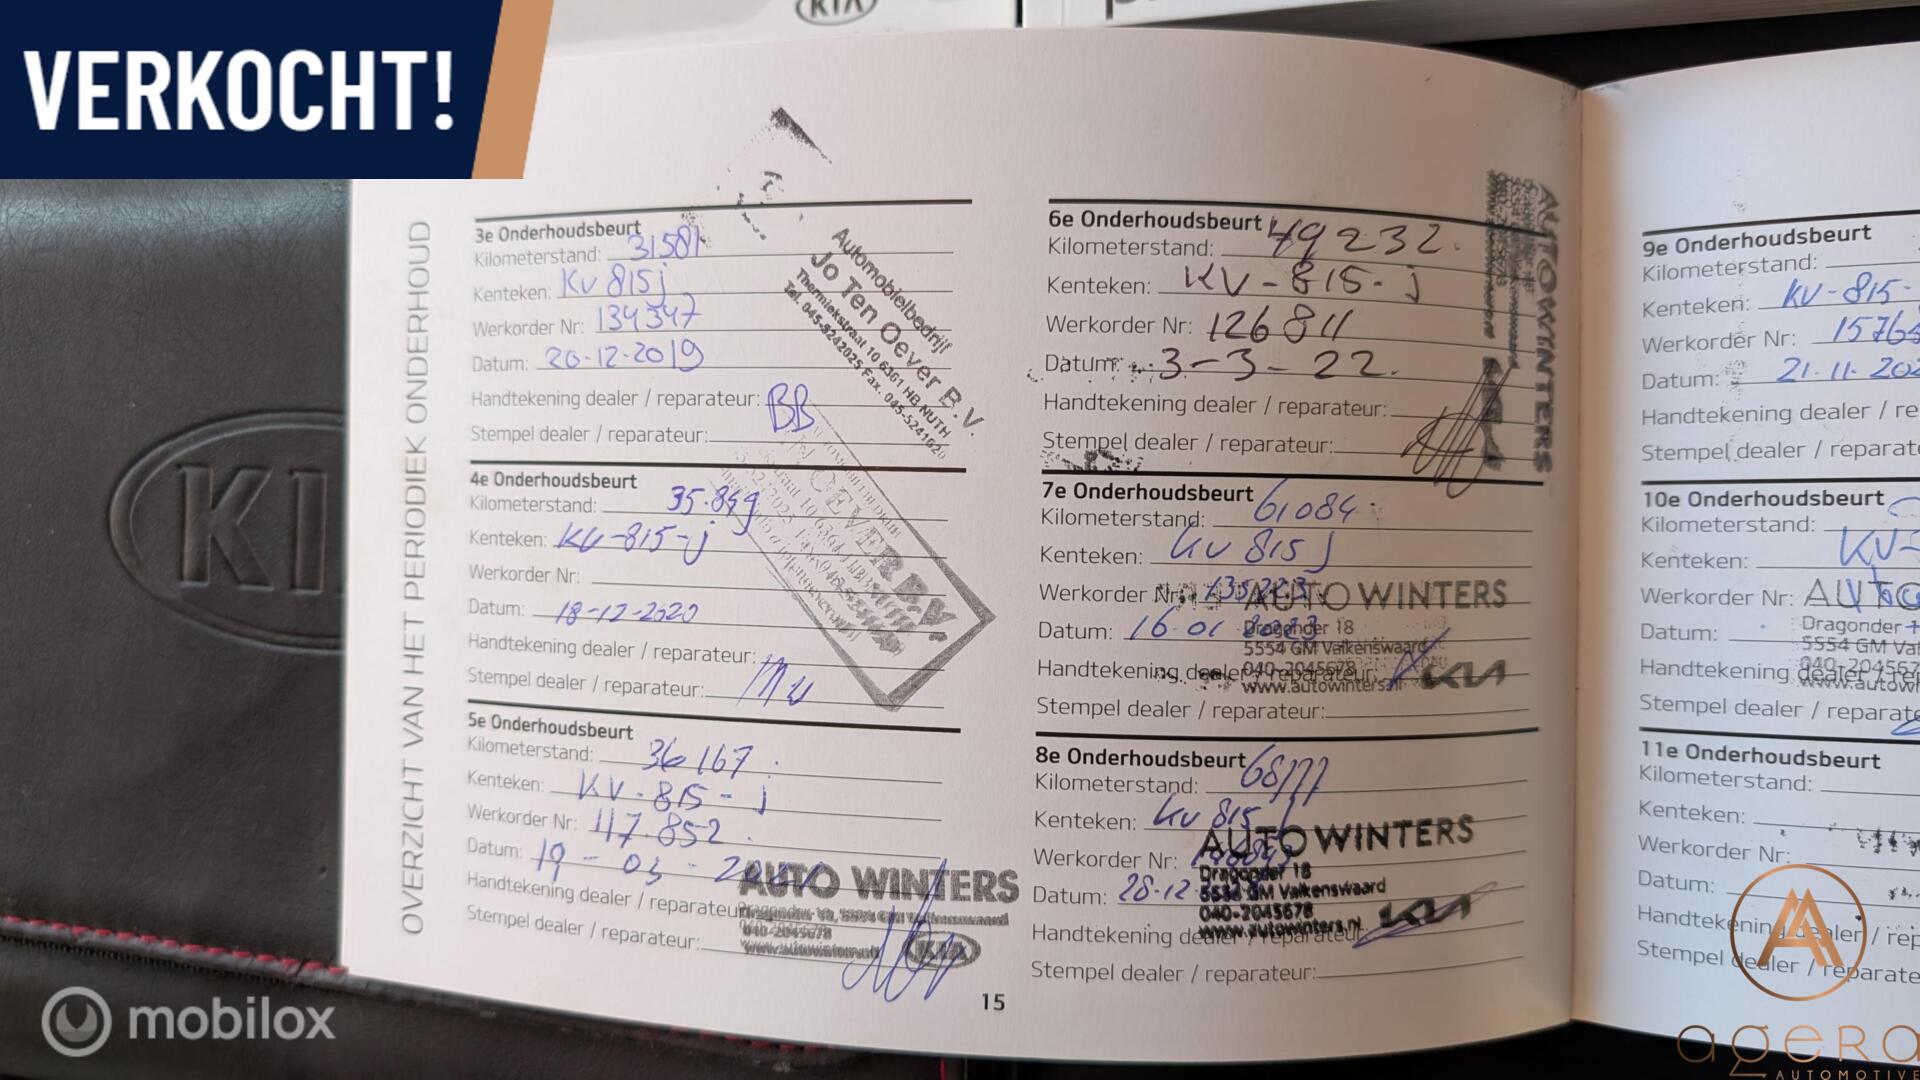 VERKOCHT!
KIA
OVERZICHT VAN HET PERIODIEK ONDERHOUD
3e Onderhoudsbeurt
Kilometerstand: 31581
Kenteken: KV 815 j
Werkorder Nr: 134347
Datum: 20-12-2019
Handtekening dealer / reparateur: BB
Stempel dealer / reparateur:
Automobielbedrijf
Jo Ten Oever B.V.
Thermiekstraat 10 6361 HB NUTH
Tel. 045-5242025 Fax. 045-5241620
4e Onderhoudsbeurt
Kilometerstand: 35.849
Kenteken: KV-815-j
Werkorder Nr:
Datum: 18-12-2020
Handtekening dealer / reparateur:
Stempel dealer / reparateur:
5e Onderhoudsbeurt
Kilometerstand: 36167
Kenteken: KV-815-j
Werkorder Nr: 117.852
Datum: 19-03-
Handtekening dealer / reparateur
Stempel dealer / reparateur:
AUTO WINTERS
040-2045678
www.autowinters.nl
KIA
15
6e Onderhoudsbeurt
Kilometerstand: 49232
Kenteken: KV-815-j
Werkorder Nr: 126811
Datum: 3-3-22.
Handtekening dealer / reparateur:
Stempel dealer / reparateur:
AUTO WINTERS
7e Onderhoudsbeurt
Kilometerstand: 61084
Kenteken: KV 815 J
Werkorder Nr:
Datum: 16-01
Handtekening dealer / reparateur:
Stempel dealer / reparateur:
AUTO WINTERS
Dragonder 18
5554 GM Valkenswaard
040-2045678
www.autowinters.nl
KIA
8e Onderhoudsbeurt
Kilometerstand:
Kenteken: KV 815
Werkorder Nr:
Datum: 28-12
Handtekening dealer / reparateur:
Stempel dealer / reparateur:
AUTO WINTERS
Dragonder 18
5554 GM Valkenswaard
040-2045678
www.autowinters.nl
KIA
9e Onderhoudsbeurt
Kilometerstand:
Kenteken: KV-815-
Werkorder Nr: 15765
Datum: 21-11-202
Handtekening dealer / re
Stempel dealer / reparate
10e Onderhoudsbeurt
Kilometerstand:
Kenteken: KV-
Werkorder Nr:
Datum:
Handtekening dealer / rep
Stempel dealer / reparate
AUTO
Dragonder
5554 GM Va
040-204567
www.autowi
11e Onderhoudsbeurt
Kilometerstand:
Kenteken:
Werkorder Nr:
Datum:
Handtekening dealer / rep
Stempel dealer / reparate
mobilox
agera
AUTOMOTIVE